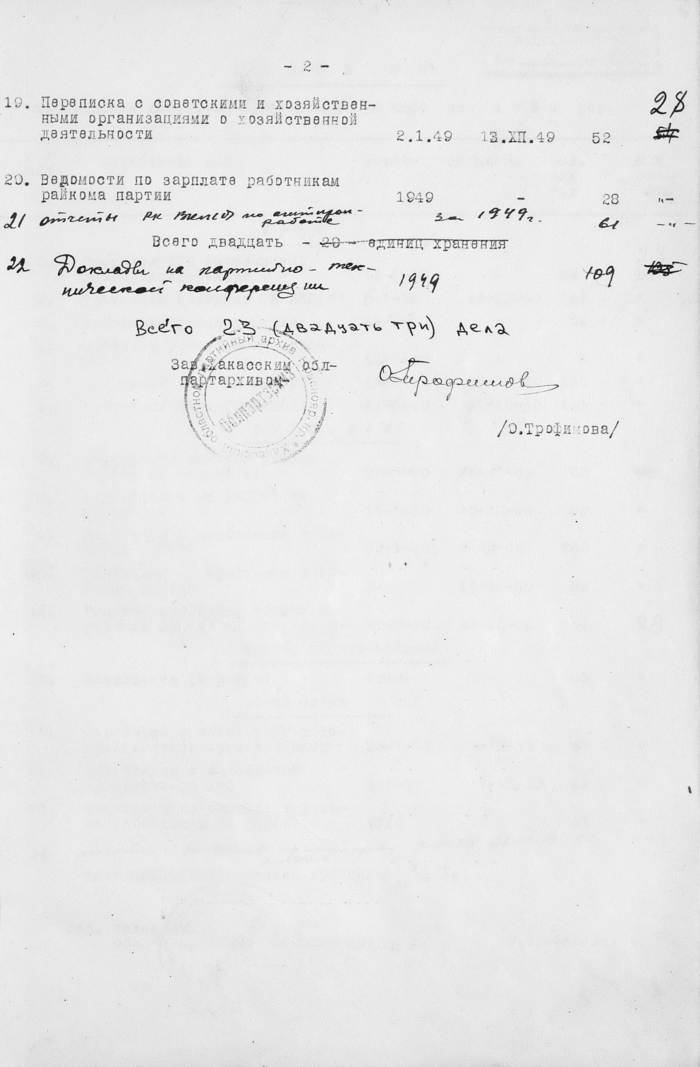 - 2 -
28
19. Переписка с советскими и хозяйствен-
ными организациями о хозяйственной
деятельности 2.1.49 13.ХП.49 52
20. Ведомости по зарплате работникам
райкома партии 1949 - 28 "-
21 отчеты РК ВКП(б) по агитпроп-
работе за 1949г. 61 -"-
Всего двадцать - 20 - единиц хранения
22 Доклады на партийно-тех-
нической конференции 1949 109
Всего 23 (двадцать три) дела
Зав.Хакасским обл-
партархивом-
О.Трофимов
/О.Трофимова/
Облпартархив